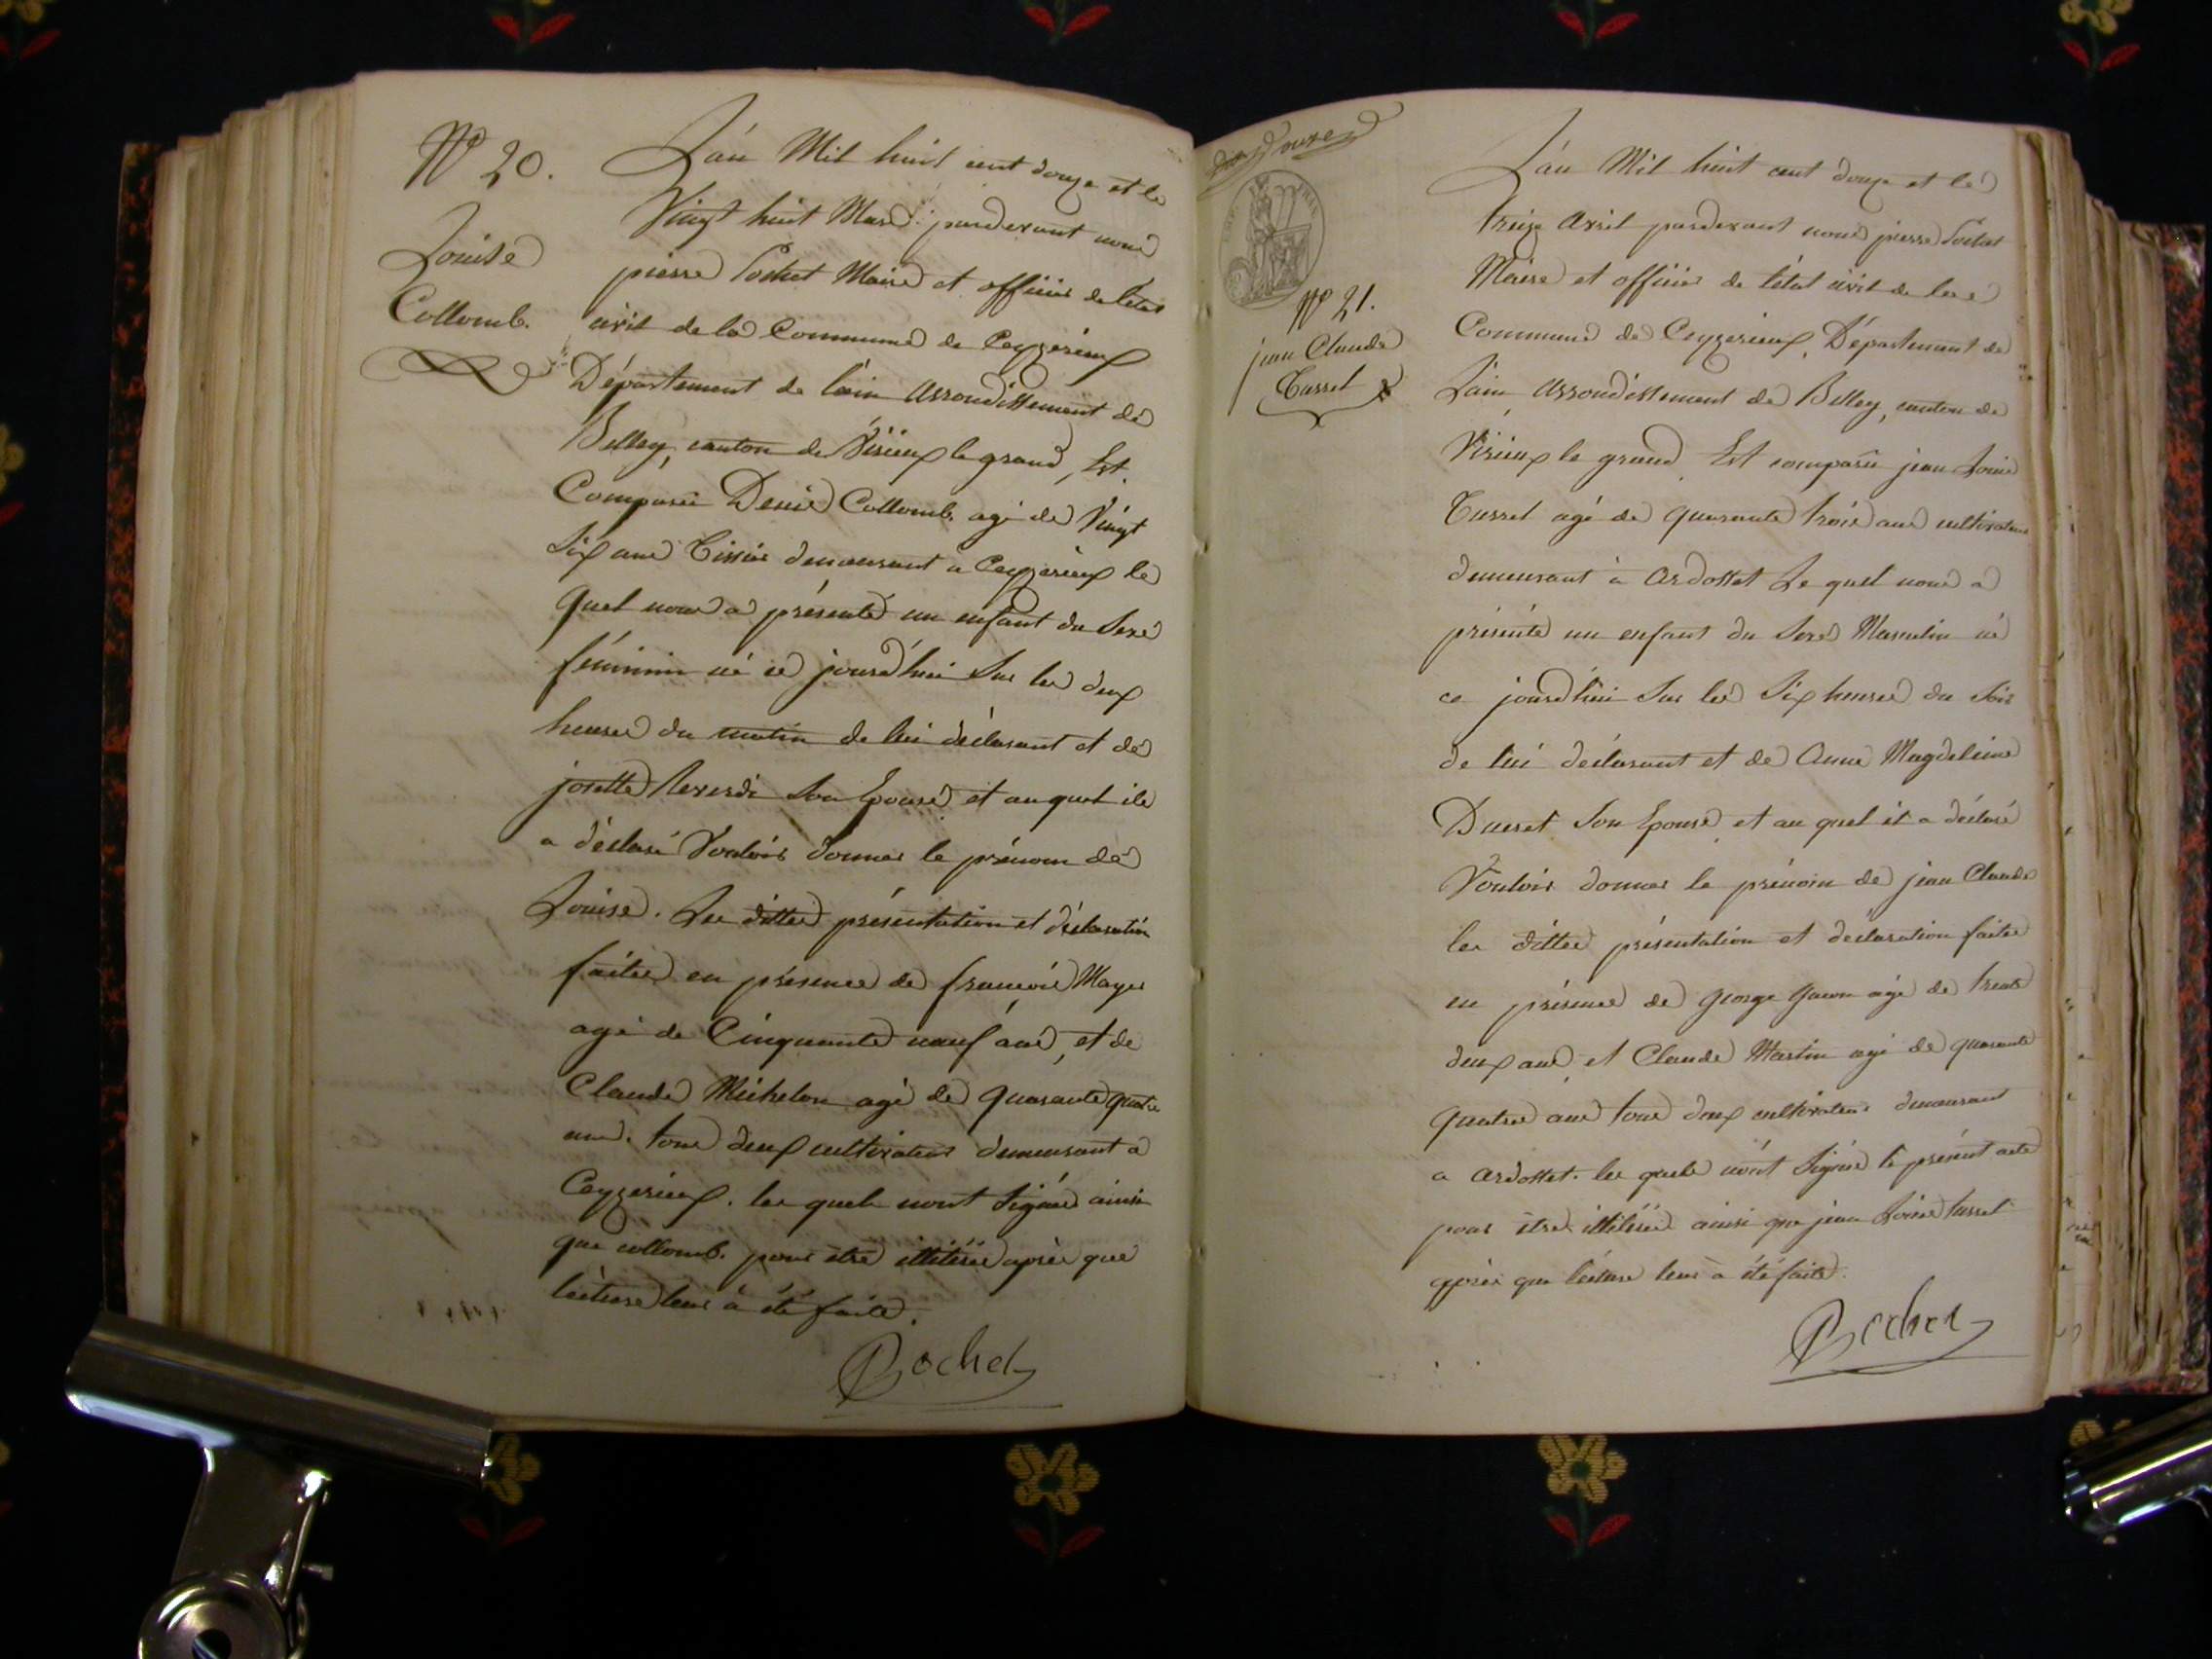 Nº 20.
Louise
Collomb.
L'an Mil huit cent douze et le
Vingt huit Mars pardevant nous
pierre Pochet Maire et officier de l'état
civil de la Commune de Ceyzerieux
Département de l'ain arrondissement de
Belley, canton de Virieux le grand, Est
Comparu Denis Collomb. agé de Vingt
Six ans Tissier demeurant a Ceyzerieux le
quel nous a présenté un enfant du Sexe
féminin né ce jourd'hui Sur les deux
heures du matin de lui déclarant et de
josette Reverdi Son Epouse et auquel ile
a déclaré Vouloir donner le prénom de
Louise. Les dittes présentation et déclaration
faites en présence de françois Mayer
agé de Cinquante neuf ans, et de
Claude Michelon agé de quarante quatre
ans. tous deux cultivateurs demeurant a
Ceyzerieux. les quels n'ont Signés ainsi
que collomb. pour être illitérés après que
lécture leur à été faite.
Pochet
douze
Nº 21.
jean Claude
Tusset
L'an Mil huit cent douze et le
treize avril pardevant nous pierre Pochet
Maire et officier de l'état civil de la
Commune de Ceyzerieux, Département de
L'ain arrondissement de Belley, canton de
Virieux le grand Est comparu jean Louis
Tusset agé de quarante trois ans cultivateur
demeurant à ardosset Le quel nous a
présenté un enfant du Sexe Masculin né
ce jourd'hui Sur les Six heures du Soir
de lui déclarant et de Anne Magdeleine
Ducret Son Epouse et au quel il a déclaré
Vouloir donner le prénom de jean Claude
les dittes présentation et déclaration faites
en présence de george agé de trente
deux ans et Claude Martin agé de quarante
quatre ans tous deux cultivateurs demeurant
a ardosset. les quels n'ont Signés le présent acte
pour être illitérés ainsi que jean Louis tusset
après que lécture leur à été faite.
Pochet